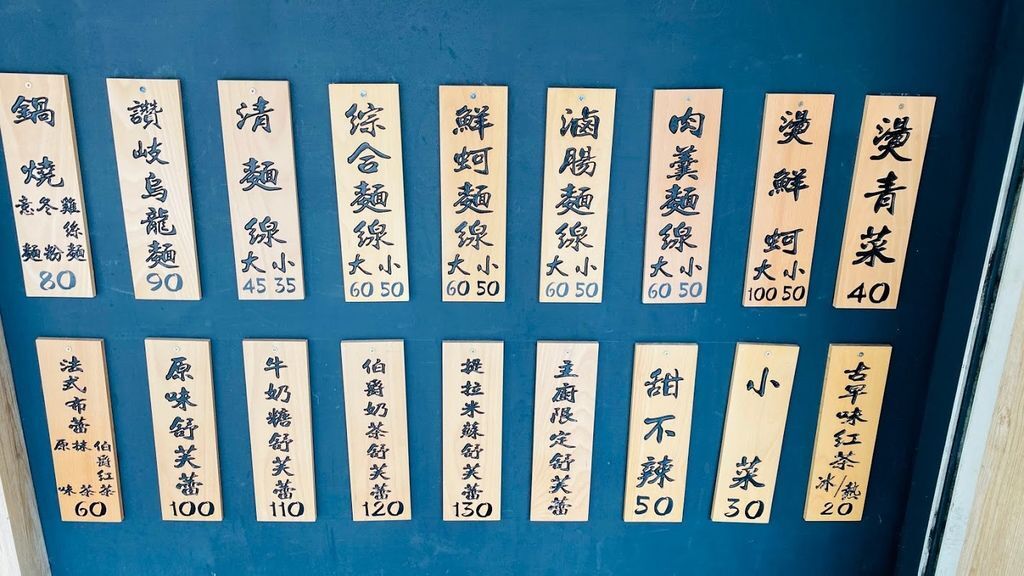 鍋燒
意麵 冬粉 雞絲麵
80
讚岐烏龍麵
90
清麵線
大45 小35
綜合麵線
大60 小50
鮮蚵麵線
大60 小50
滷腸麵線
大60 小50
肉羹麵線
大60 小50
燙鮮蚵
大100 小50
燙青菜
40
法式布蕾
原味 抹茶 伯爵紅茶
60
原味舒芙蕾
100
牛奶糖舒芙蕾
110
伯爵奶茶舒芙蕾
120
提拉米蘇舒芙蕾
130
主廚限定舒芙蕾
甜不辣
50
小菜
30
古早味紅茶
冰/熱
20